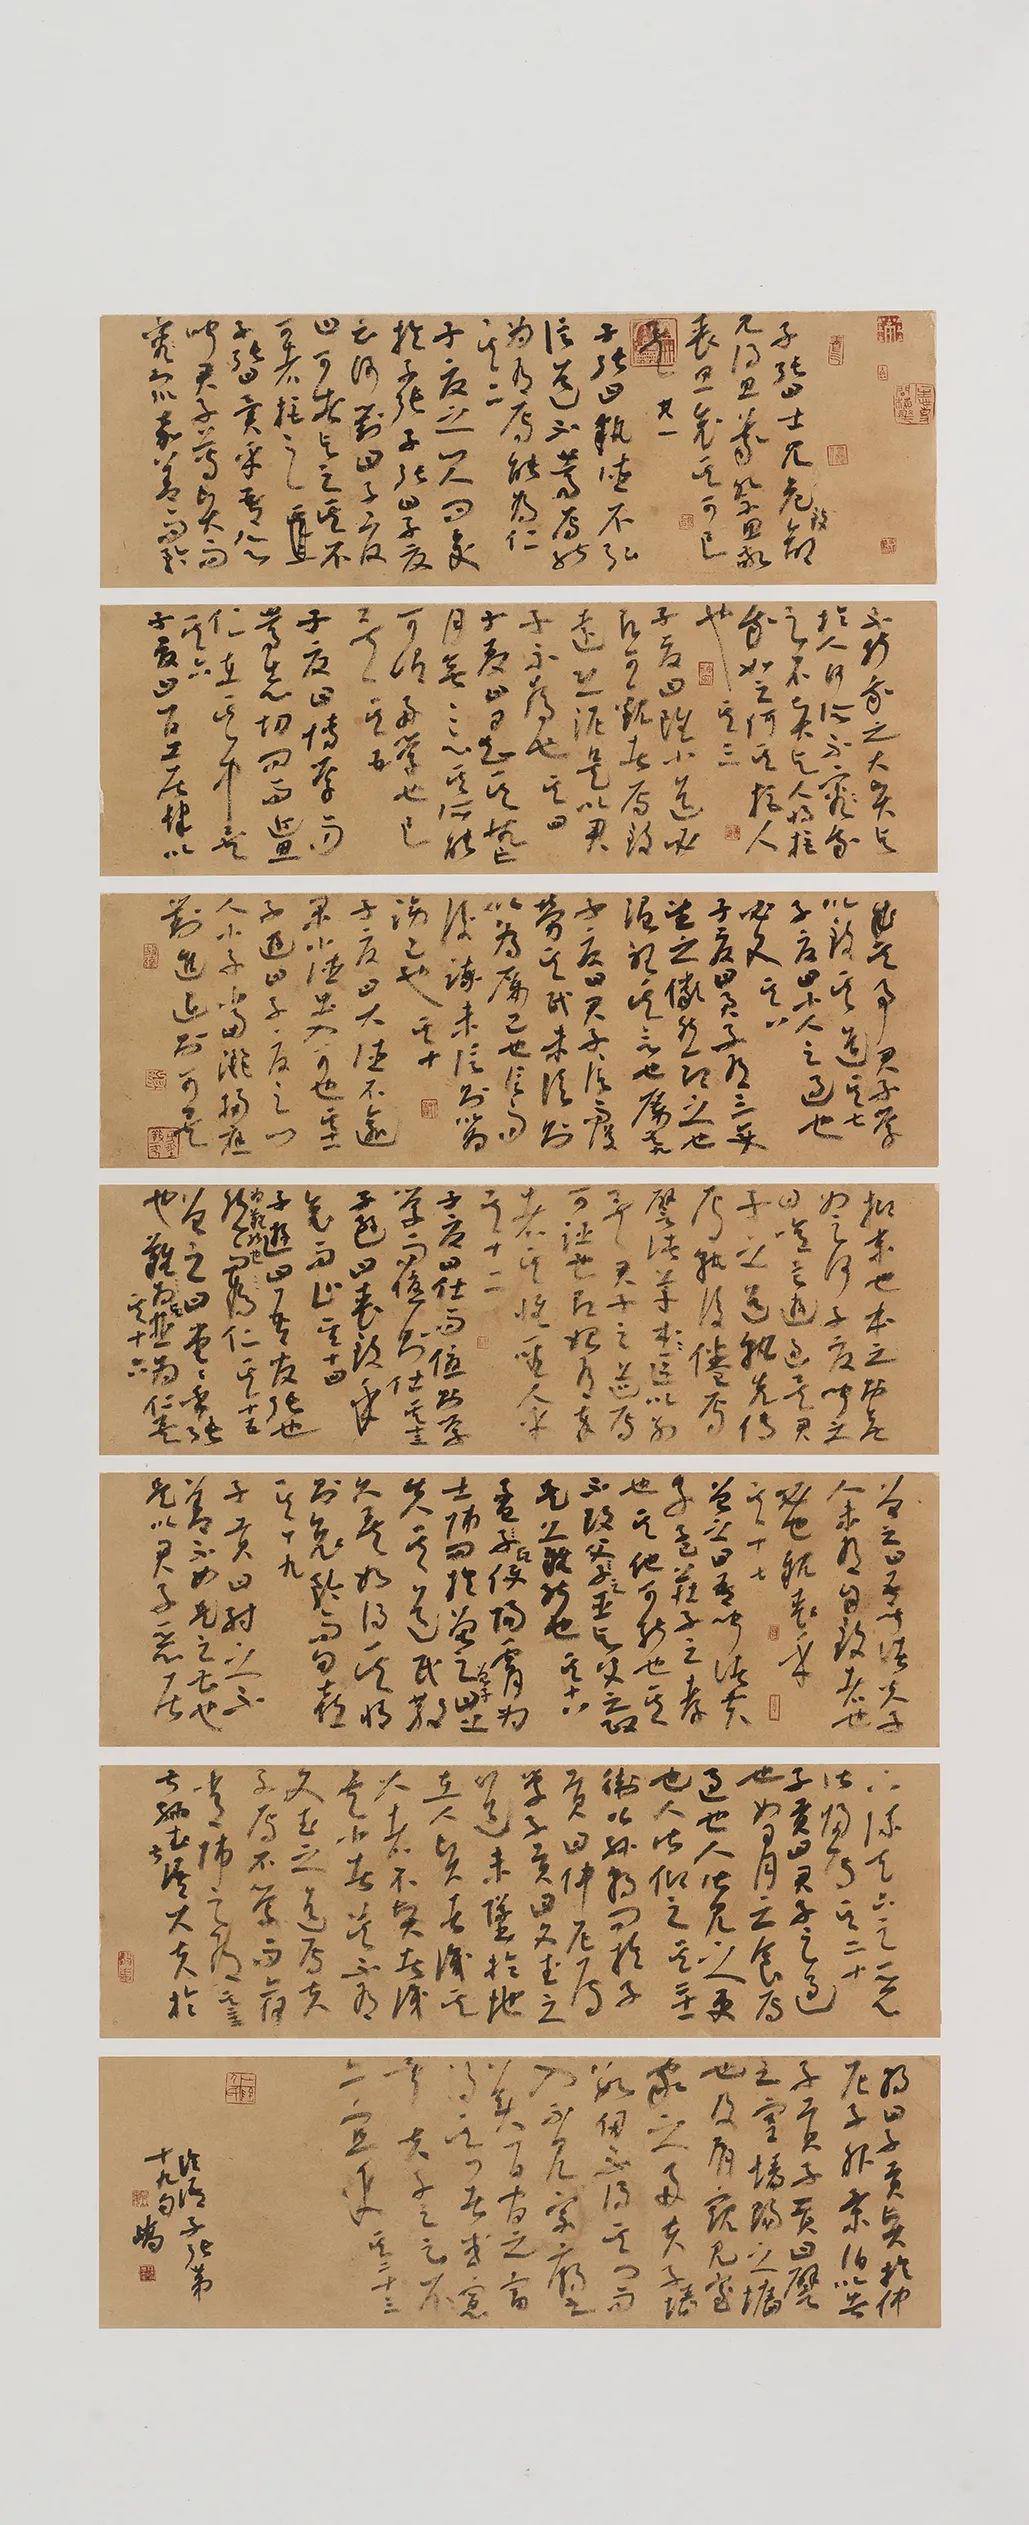 子張曰士見危致命
見得思義祭思敬
喪思哀其可已
矣 其一
子張曰執德不弘
信道不篤焉能
為有焉能為亡
其二
子夏之門人問交
於子張子張曰子夏
云何對曰子夏
曰可者與之其不
可者拒之
子張曰異乎吾所
聞君子尊賢而
容眾嘉善而矜
不能我之大賢與
於人何所不容我
之不賢與人將拒
我如之何其拒人
也 其三
子夏曰雖小道必
有可觀者焉致
遠恐泥是以君
子不為也 其四
子夏曰日知其所亡
月無忘其所能
可謂好學也已
矣 其五
子夏曰博學而
篤志切問而近思
仁在其中矣
其六
子夏曰百工居肆以
成其事君子學
以致其道其七
子夏曰小人之過也
必文 其八
子夏曰君子有三變
望之儼然即之也
溫聽其言也厲其九
子夏曰君子信而後
勞其民未信則
以為厲己也信而
後諫未信則以為
謗己也 其十
子夏曰大德不逾
閑小德出入可也其十一
子游曰子夏之門
人小子當灑掃應
對進退則可矣
抑末也本之則無
如之何子夏聞之
曰噫言游過矣君
子之道孰先傳
焉孰後倦焉
譬諸草木區以別
矣君子之道焉
可誣也有始有卒
者其惟聖人乎
其十二
子夏曰仕而優則學
學而優則仕其十三
子游曰喪致乎
哀而止其十四
子游曰吾友張也
為難能也
然而未仁其十五
曾子曰堂堂乎張
也難與並為仁矣
其十六
曾子曰吾聞諸夫子
人未有自致者也
必也親喪乎
其十七
曾子曰吾聞諸夫
子孟莊子之孝
也其他可能也其
不改父之臣與父之政
是之難能也其十八
孟氏使陽膚為
士師問於曾子曾子曰上
失其道民散
久矣如得其情
則哀矜而勿喜
其十九
子貢曰紂之不
善不如是之甚也
是以君子惡居
下流天下之惡
皆歸焉其二十
子貢曰君子之過
也如日月之食焉
過也人皆見之更
也人皆仰之其二十一
衛公孫朝問於子
貢曰仲尼焉
學子貢曰文武之
道未墜於地
在人賢者識其
大者不賢者識
其小者莫不有
文武之道焉夫
子焉不學而亦何
常師之有其二十二
叔孫武叔語大夫於
朝曰子貢賢於仲
尼子服景伯以告
子貢子貢曰譬
之宮牆賜之牆
也及肩窺見室
家之好夫子之牆
數仞不得其門而
入不見宗廟之
美百官之富
得其門者或寡
矣夫子之云不
亦宜乎其二十三
論語子張第
十九句